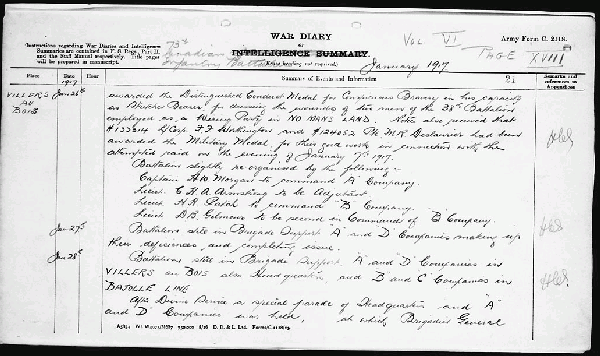 WAR DIARY
or
INTELLIGENCE SUMMARY.
(Erase heading not required.)
Army Form C. 2118.
Vol VI
PAGE XVIII
Instructions regarding War Diaries and Intelligence
Summaries are contained in F. S. Regs., Part II.
and the Staff Manual respectively. Title pages
will be prepared in manuscript.
73rd
Canadian
Infantry Battalion
January 1917
Place
Date
1917
Summary of Events and Information
Remarks and
references to
Appendices
VILLERS
AU
BOIS
Jan 26th
awarded the Distinguished Conduct Medal for Conspicuous Bravery in his capacity
as Stretcher Bearer for dressing the wounds of two men of the 38th Battalion
employed as a Wiring Party in NO MANS LAND. Notice also received that
#133214 L/Cpl F. F. Worthington and #124652 Pte M R had been
awarded the Military Medal for their good work in connection with the
attempted raid on the evening of January 7th 1917.
Battalion slightly re-organised by the following:-
Captain H W Morgan to command "A" Company.
Lieut. C H A Armstrong to be Adjutant
Lieut. H R to command "B" Company.
Lieut. D B Gilmour to be second in Command of "B" Company.
Jan 27th
Battalion still in Brigade Support "A" and "D" Companies making up
their deficiencies and completing issue.
Jan 28th
Battalion still in Brigade Support "A" and "D" Companies in
VILLERS au BOIS also Headquarters, and "B" and "C" Companies in
BAJOLLE LINE
After Divine Service a special parade of Headquarters and "A"
and "D" Companies was held, at which Brigadier General